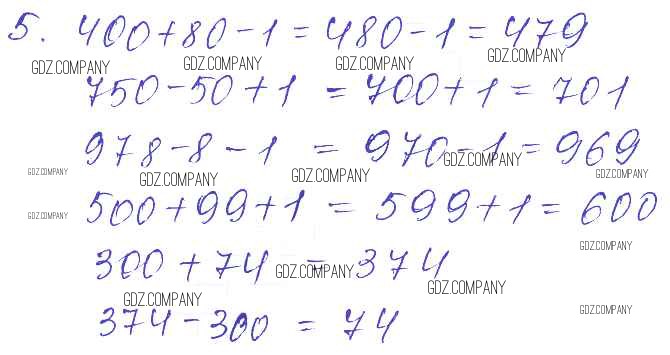 5. 400+80-1=480-1=479
GDZ.COMPANY GDZ.COMPANY GDZ.COMPANY GDZ.COMPANY
750-50+1 =700+1=701
978-8-1 = 970-1=969
GDZ.COMPANY GDZ.COMPANY GDZ.COMPANY GDZ.COMPANY GDZ.COMPANY
500+99+1 = 599+1=600
GDZ.COMPANY GDZ.COMPANY
300+74 =374
GDZ.COMPANY GDZ.COMPANY GDZ.COMPANY GDZ.COMPANY
374-300 = 74